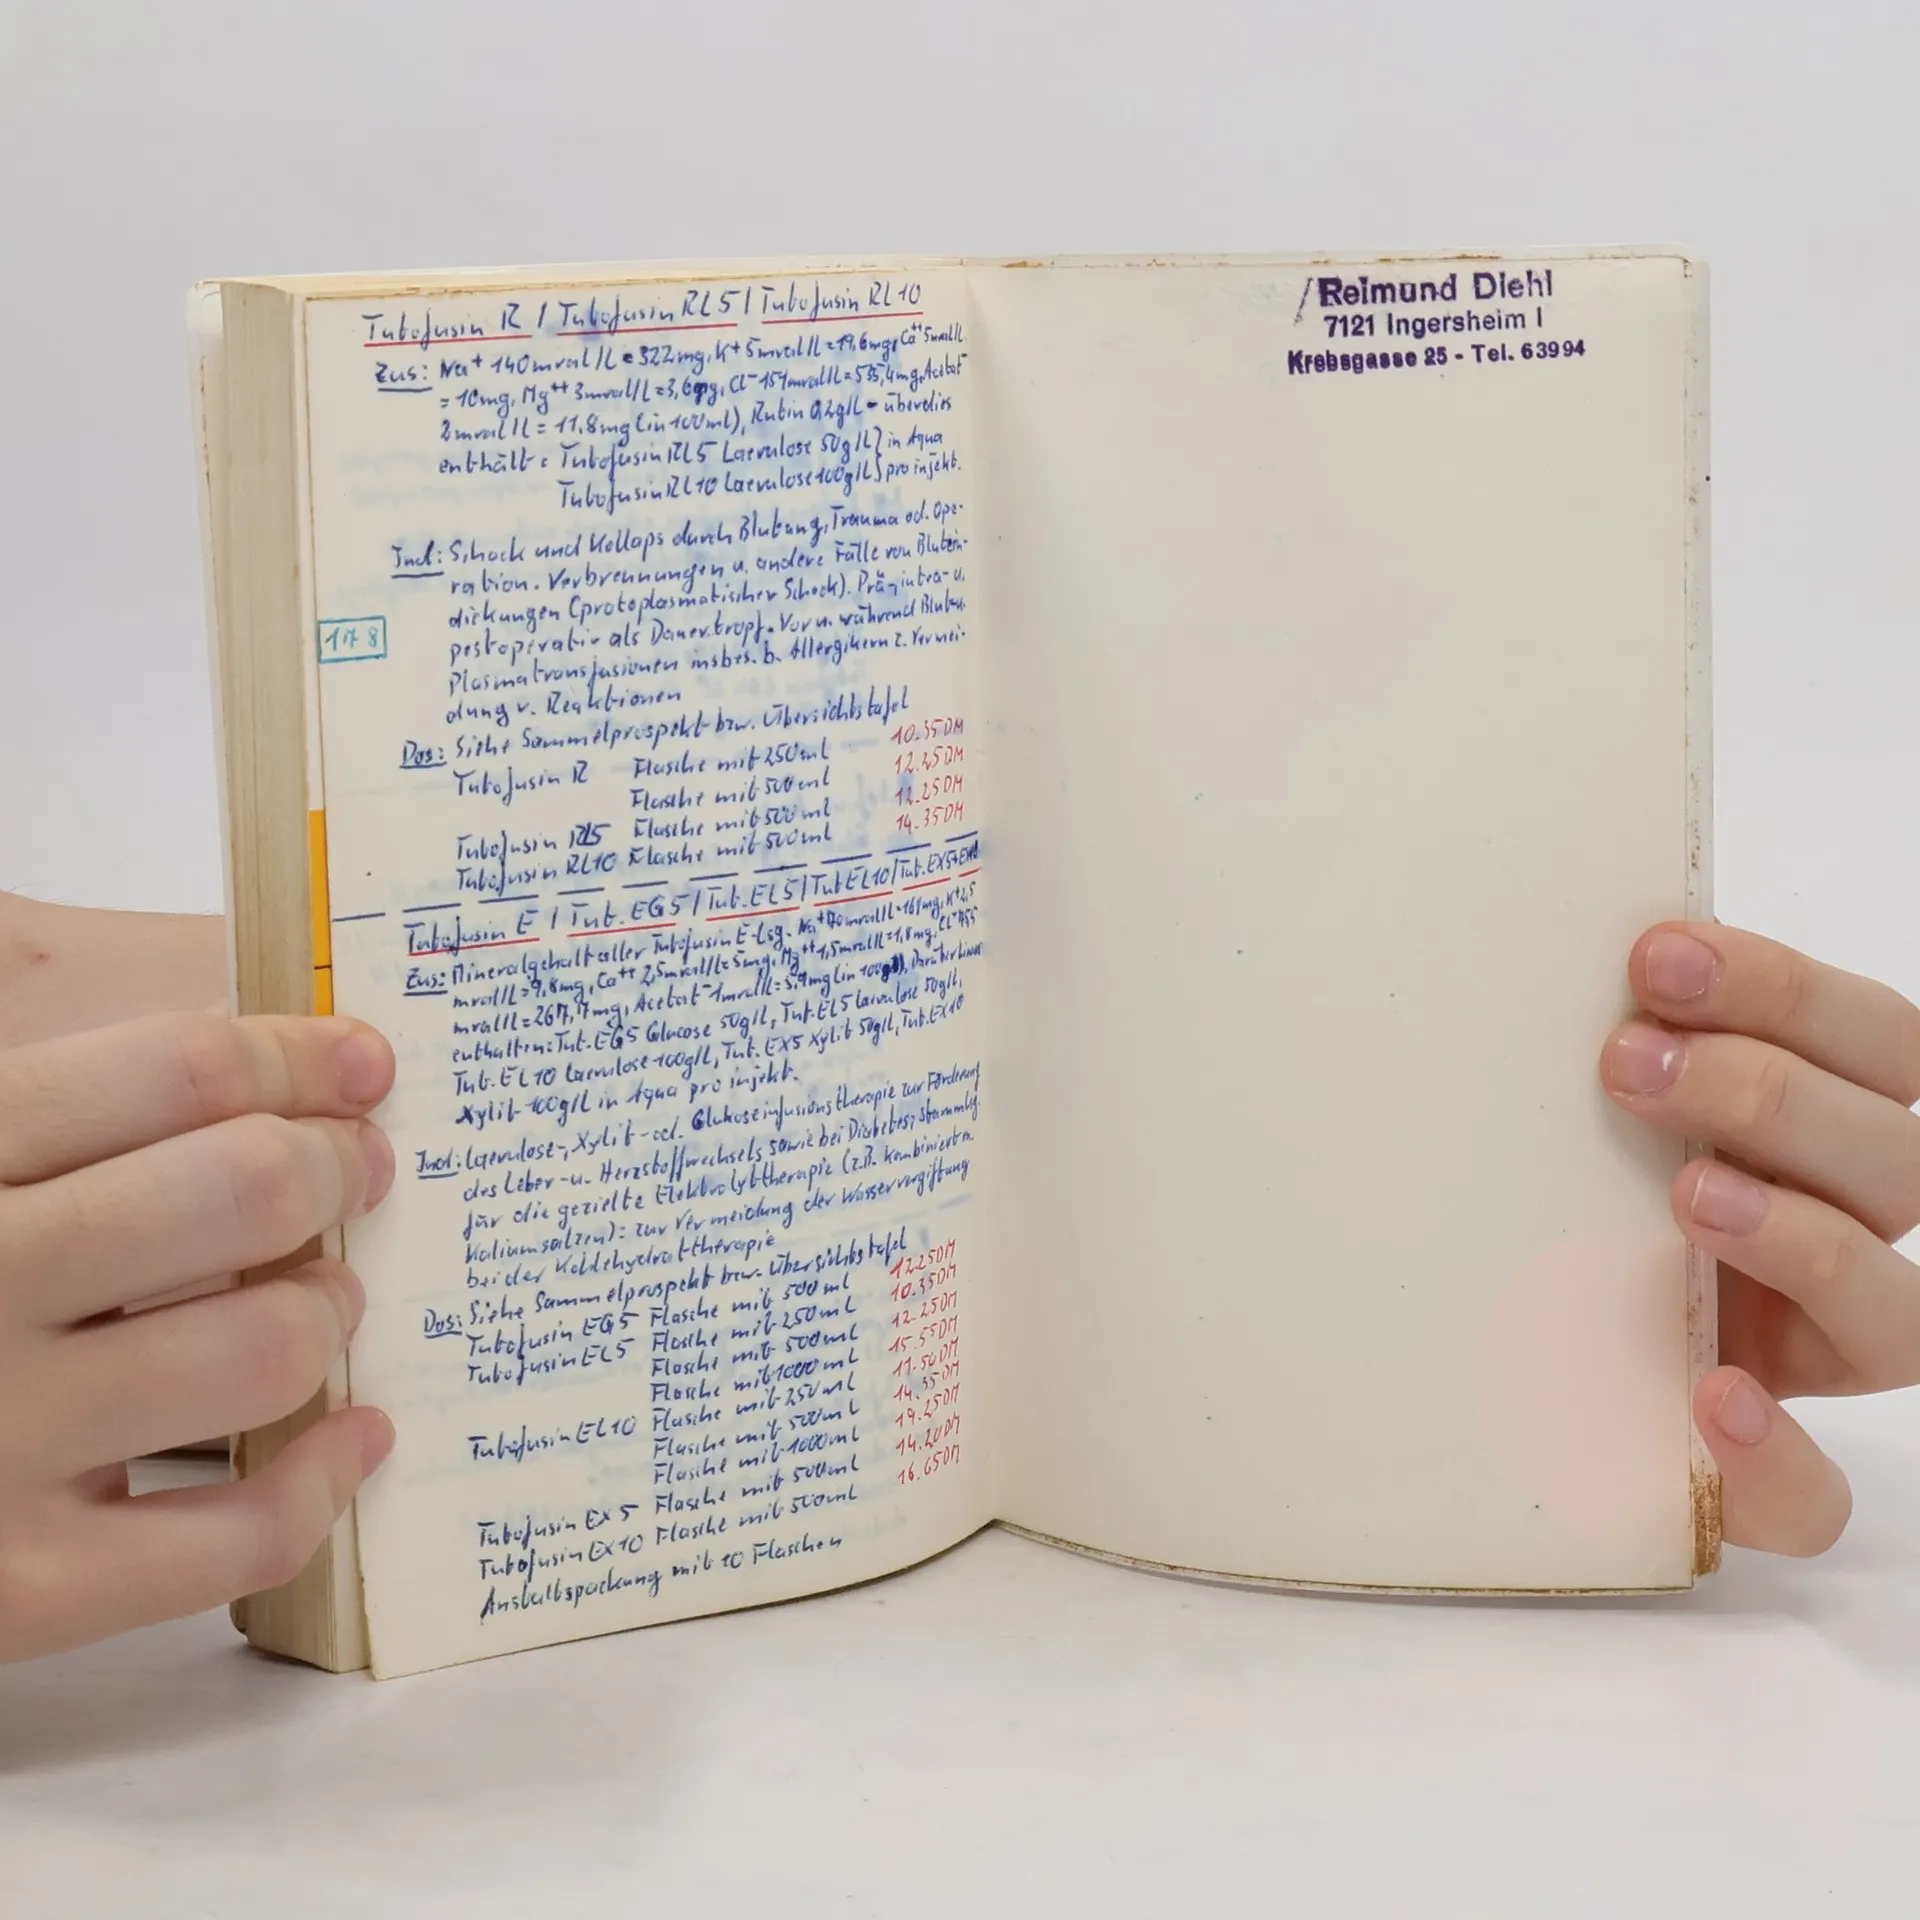 Tubofusin R / Tubofusin RL5 / Tubofusin RL10
Zus: Na+ 140mval/L = 322mg, K+ 5mval/L = 19,6mg, Ca++ 5mval/L
= 10mg, Mg++ 3mval/L = 3,6mg, Cl- 151mval/L = 535,4mg, Acetat-
2mval/L = 11,8mg (in 100ml), Rutin 0,2g/L - überdies
enthält: Tubofusin RL5 Laevulose 50g/L } in Aqua
Tubofusin RL10 Laevulose 100g/L } pro injekt.
Ind: Schock und Kollaps durch Blutung, Trauma od. Ope-
ration. Verbrennungen u. andere Fälle von Blutein-
dickungen (protoplasmatischer Schock). Prä-, intra- u.
postoperativ als Dauertropf. Vor u. während Blut- u.
Plasmatransfusionen insbes. b. Allergikern z. Vermei-
dung v. Reaktionen
178
Dos: Siehe Sammelprospekt bzw. Übersichtstafel
Tubofusin R Flasche mit 250ml 10.35DM
Flasche mit 500ml 12.25DM
Tubofusin RL5 Flasche mit 500ml 12.25DM
Tubofusin RL10 Flasche mit 500ml 14.35DM
Tubofusin E / Tub. EG5 / Tub. EL5 / Tub EL10 / Tub. EX5+EX10
Zus: Mineralgehalt aller Tubofusin E-Lsg. Na+ 70mval/L = 161mg, K+ 2,5
mval/L = 9,8mg, Ca++ 2,5mval/L = 5mg, Mg++ 1,5mval/L = 1,8mg, Cl- 75,5
mval/L = 267,7mg, Acetat- 1mval/L = 5,9mg (in 100ml), Darüber hinaus
enthalten: Tub. EG5 Glucose 50g/L, Tub. EL5 Laevulose 50g/L,
Tub. EL10 Laevulose 100g/L, Tub. EX5 Xylit 50g/L, Tub. EX10
Xylit 100g/L in Aqua pro injekt.
Ind: Laevulose-, Xylit- od. Glukoseinfusionstherapie zur Förderung
des Leber- u. Herzstoffwechsels sowie bei Diabetes; Stammlsg.
für die gezielte Elektrolyttherapie (z.B. kombiniert m.
Kaliumsalzen): zur Vermeidung der Wasservergiftung
bei der Kohlehydrattherapie
Dos: Siehe Sammelprospekt bzw. Übersichtstafel
Tubofusin EG5 Flasche mit 500 ml 12.25DM
Tubofusin EL5 Flasche mit 250ml 10.35DM
Flasche mit 500ml 12.25DM
Flasche mit 1000ml 15.55DM
Tubofusin EL10 Flasche mit 250ml 11.50DM
Flasche mit 500ml 14.35DM
Flasche mit 1000ml 19.25DM
Tubofusin EX 5 Flasche mit 500ml 14.20DM
Tubofusin EX10 Flasche mit 500ml 16.65DM
Anstaltspackung mit 10 Flaschen
Reimund Diehl
7121 Ingersheim I
Krebsgasse 25 - Tel. 63994